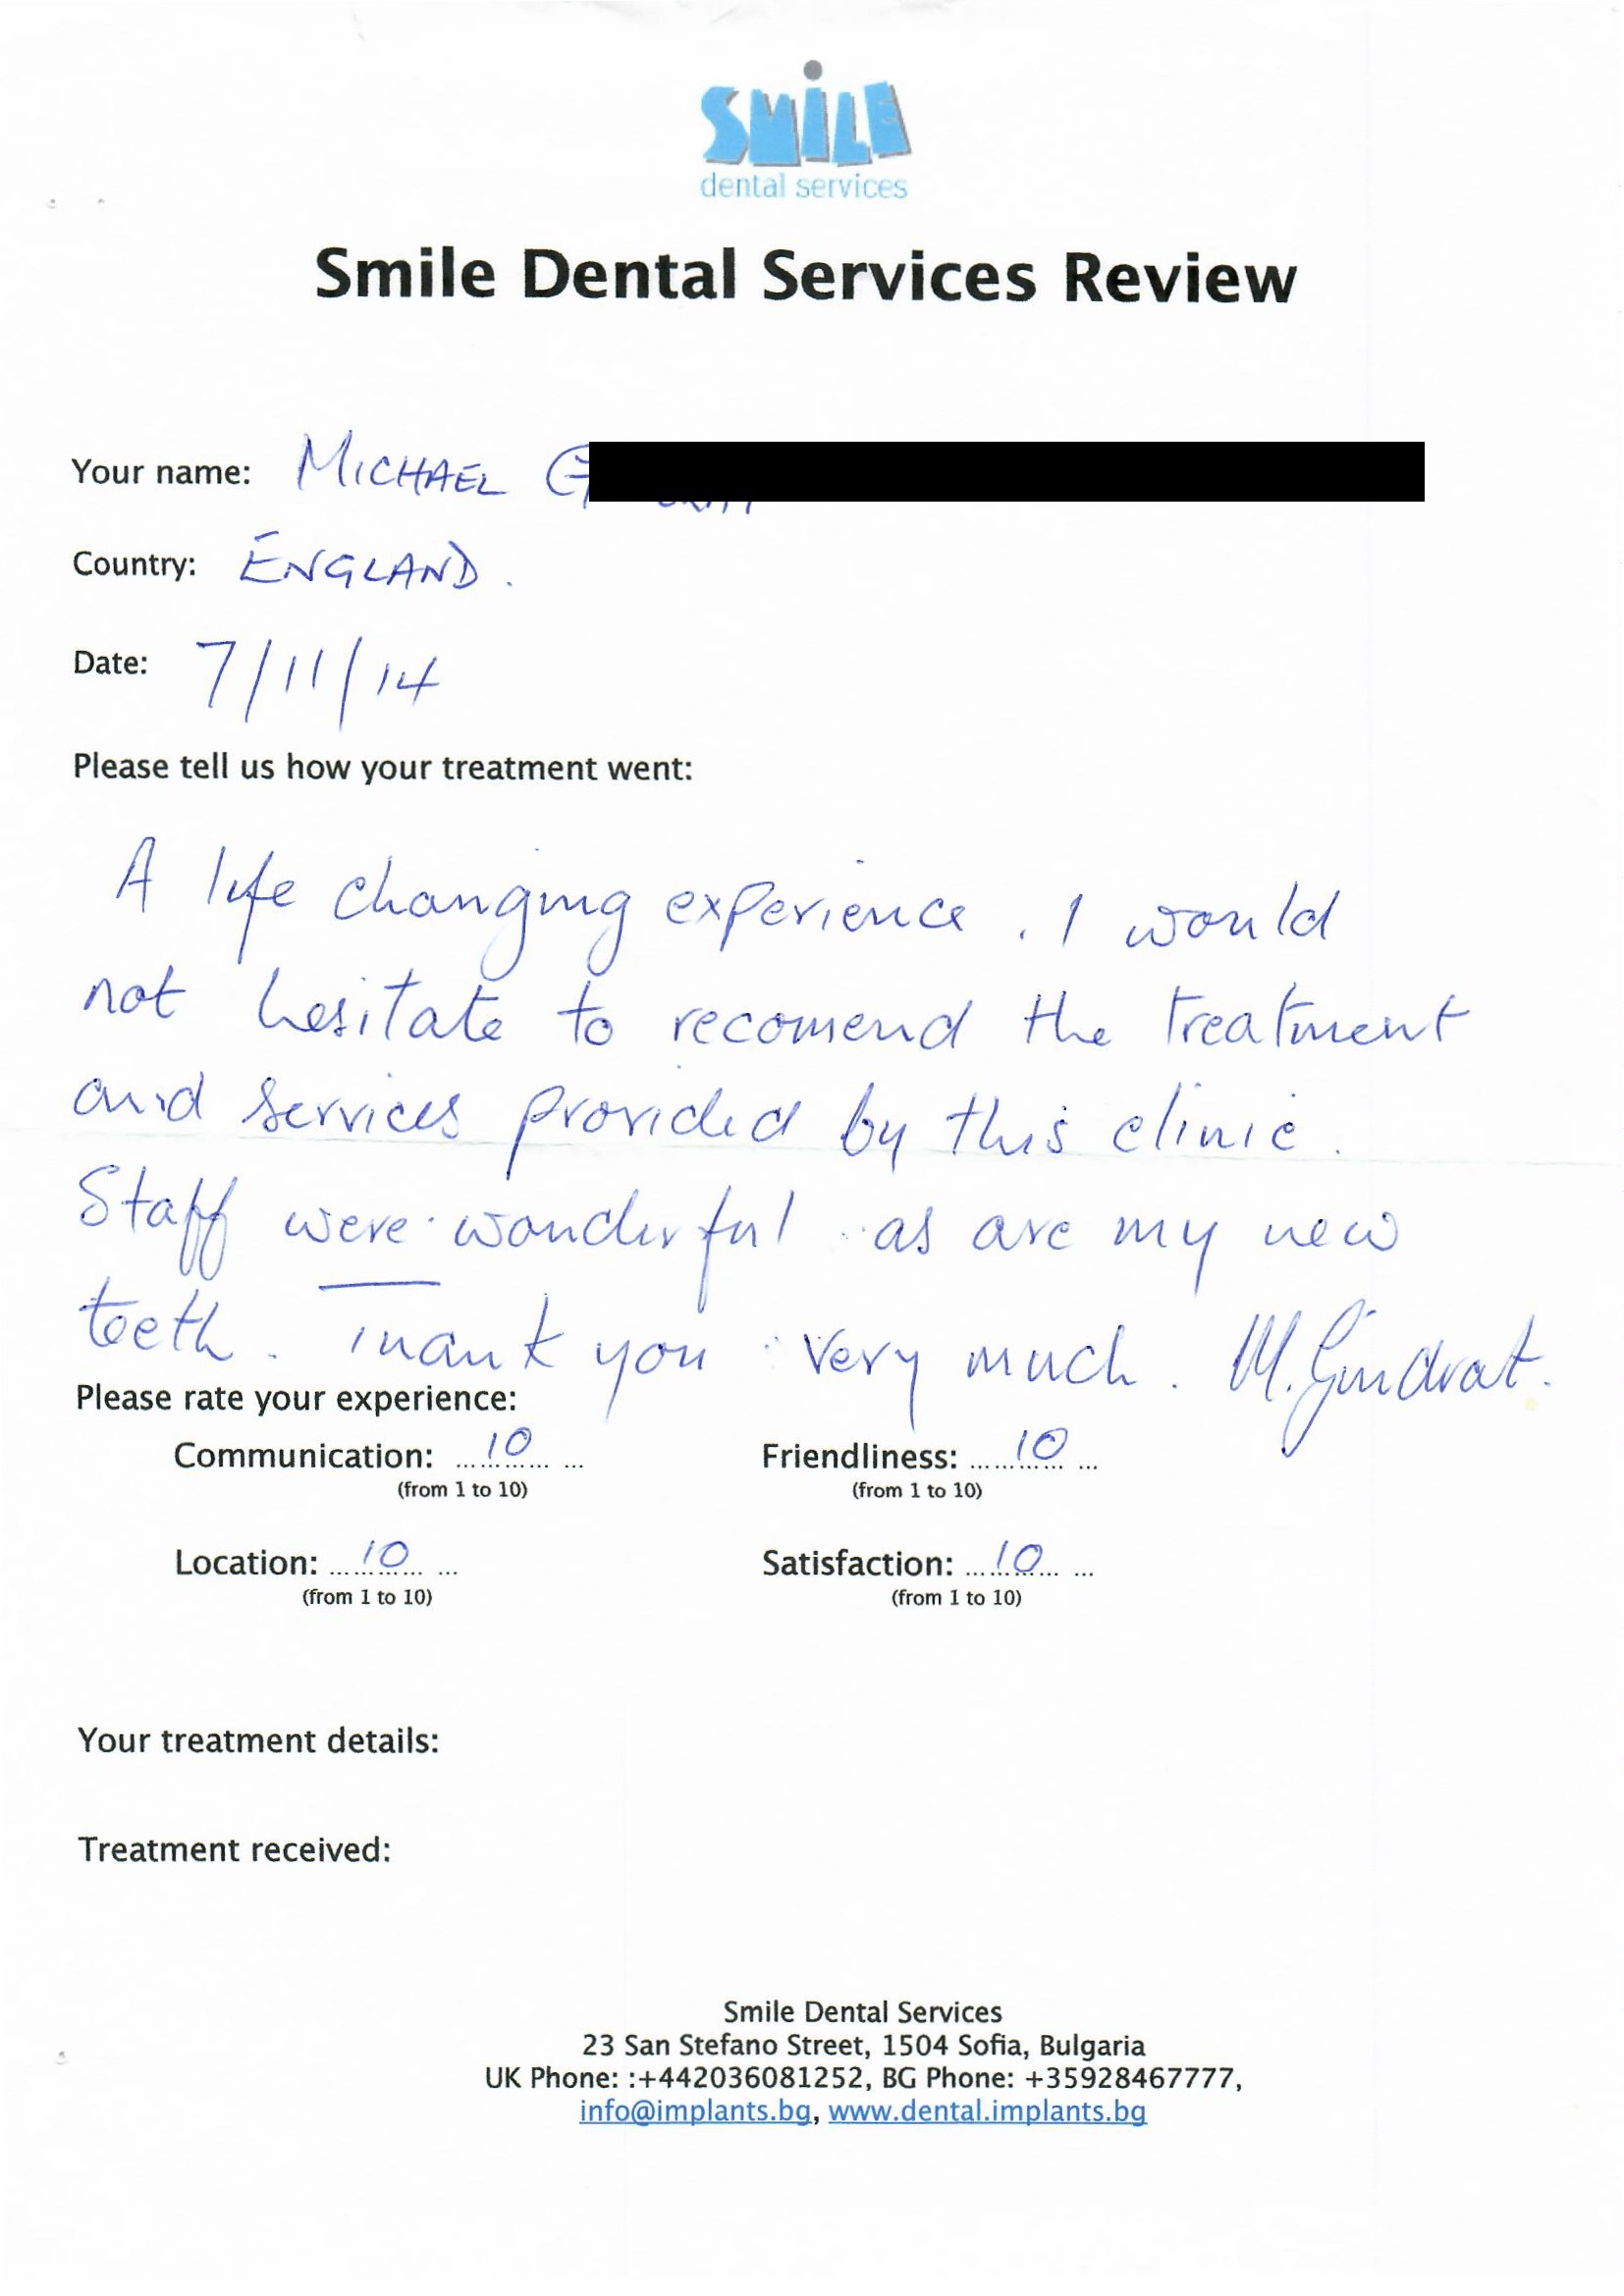 SMiLE
dental services
Smile Dental Services Review
Your name: MICHAEL G
Country: ENGLAND.
Date: 7/11/14
Please tell us how your treatment went:
A life changing experience. I would
not hesitate to recomend the treatment
and services provided by this clinic.
Staff were wonderful as are my new
teeth. Thank you very much. M.
Please rate your experience:
Communication: ...10... ... Friendliness: ...10... ...
(from 1 to 10) (from 1 to 10)
Location: ...10... ... Satisfaction: ...10... ...
(from 1 to 10) (from 1 to 10)
Your treatment details:
Treatment received:
Smile Dental Services
23 San Stefano Street, 1504 Sofia, Bulgaria
UK Phone: :+442036081252, BG Phone: +35928467777,
info@implants.bg, www.dental.implants.bg